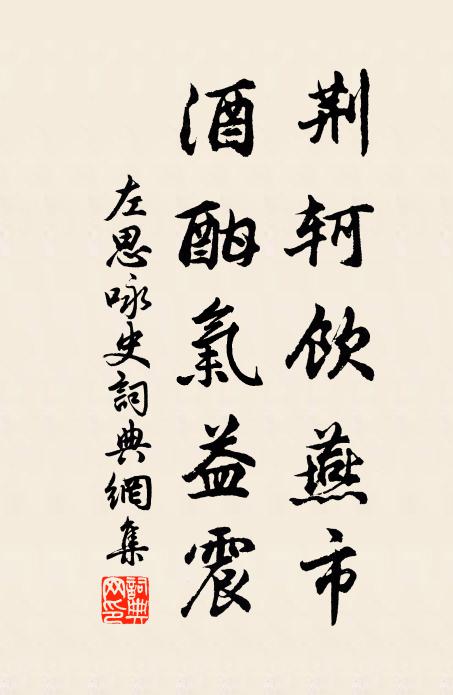 荆轲饮燕市
酒酣氣益震
左思咏史詞典網集
詞典网印